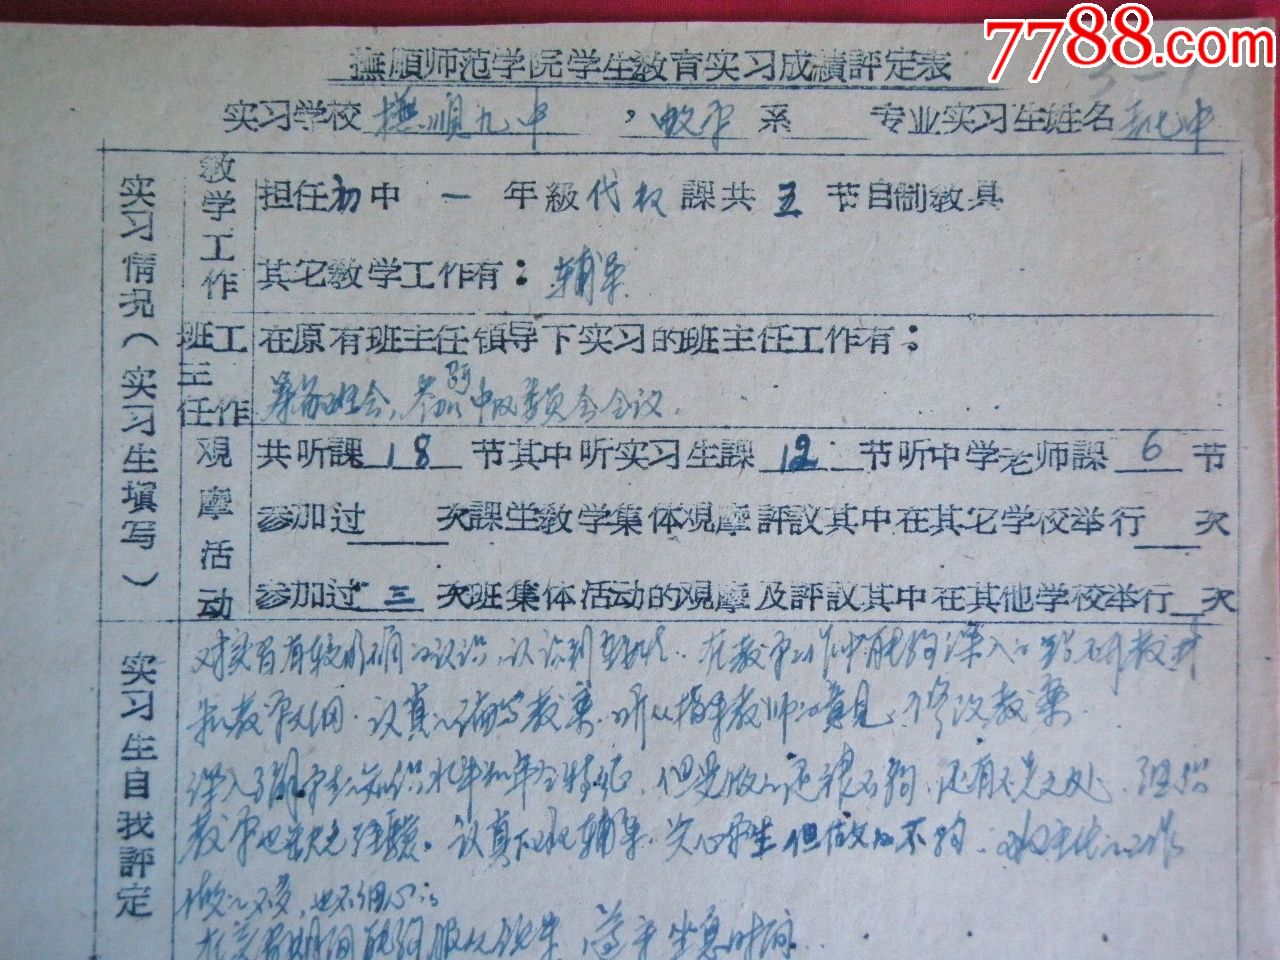 7788.com
撫順师范学院学生教育实习成績評定表
实习学校 撫順九中 , 数学 系 专业实习生姓名
教学工作
担任初中 一 年級代数課共 五 节自制教具
其它教学工作有: 辅导
班主任工作
在原有班主任領导下实习的班主任工作有:
班会、参加中队委員会会议.
观摩活动
共听課 18 节其中听实习生課 12 节听中学老师課 6 节
参加过 次課堂教学集体观摩評議其中在其它学校举行 次
参加过 三 次班集体活动的观摩及評議其中在其他学校举行 次
实习情况(实习生填写)
实习生自我評定
对实习有較明确的认识,认识到 在教学工作中能夠深入的鈷研教材
和教学大纲.认真的编写教案.听从指导教师的意見,修改教案.
深入了解学生知识水平和年令特征,但是做的还很不夠,还有不足之处.组织
教学也缺乏经驗.认真下班辅导.关心学生但做的不夠.班主任的工作
做的不多,也不细心。
在实习期间能夠服从领导.遵守坐息时间.